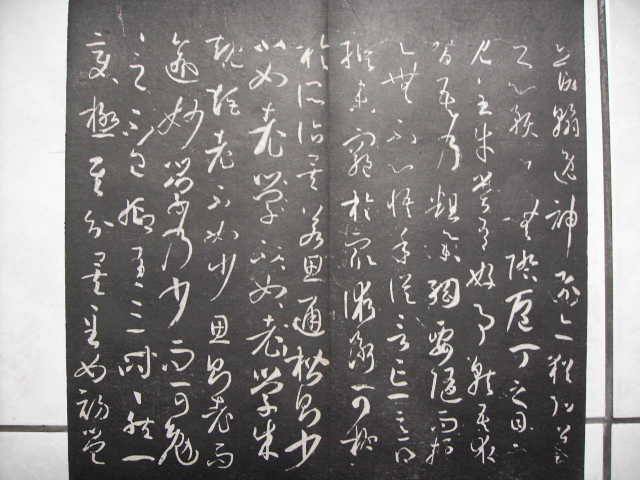 流落翰逸神飛亦猶弘羊
之心預乎無際庖丁之目不
見全牛嘗有好事就吾求
習吾乃粗舉綱要隨而授
之無不心悟手從言忘意得
縱未窮於眾術斷可極
於所詣矣若思通楷則少
不如老學不如老學成
規矩老不如少思則老而
逾妙學乃少而可勉
〻之不已抑有三時〻然一
變極其分矣至如初學